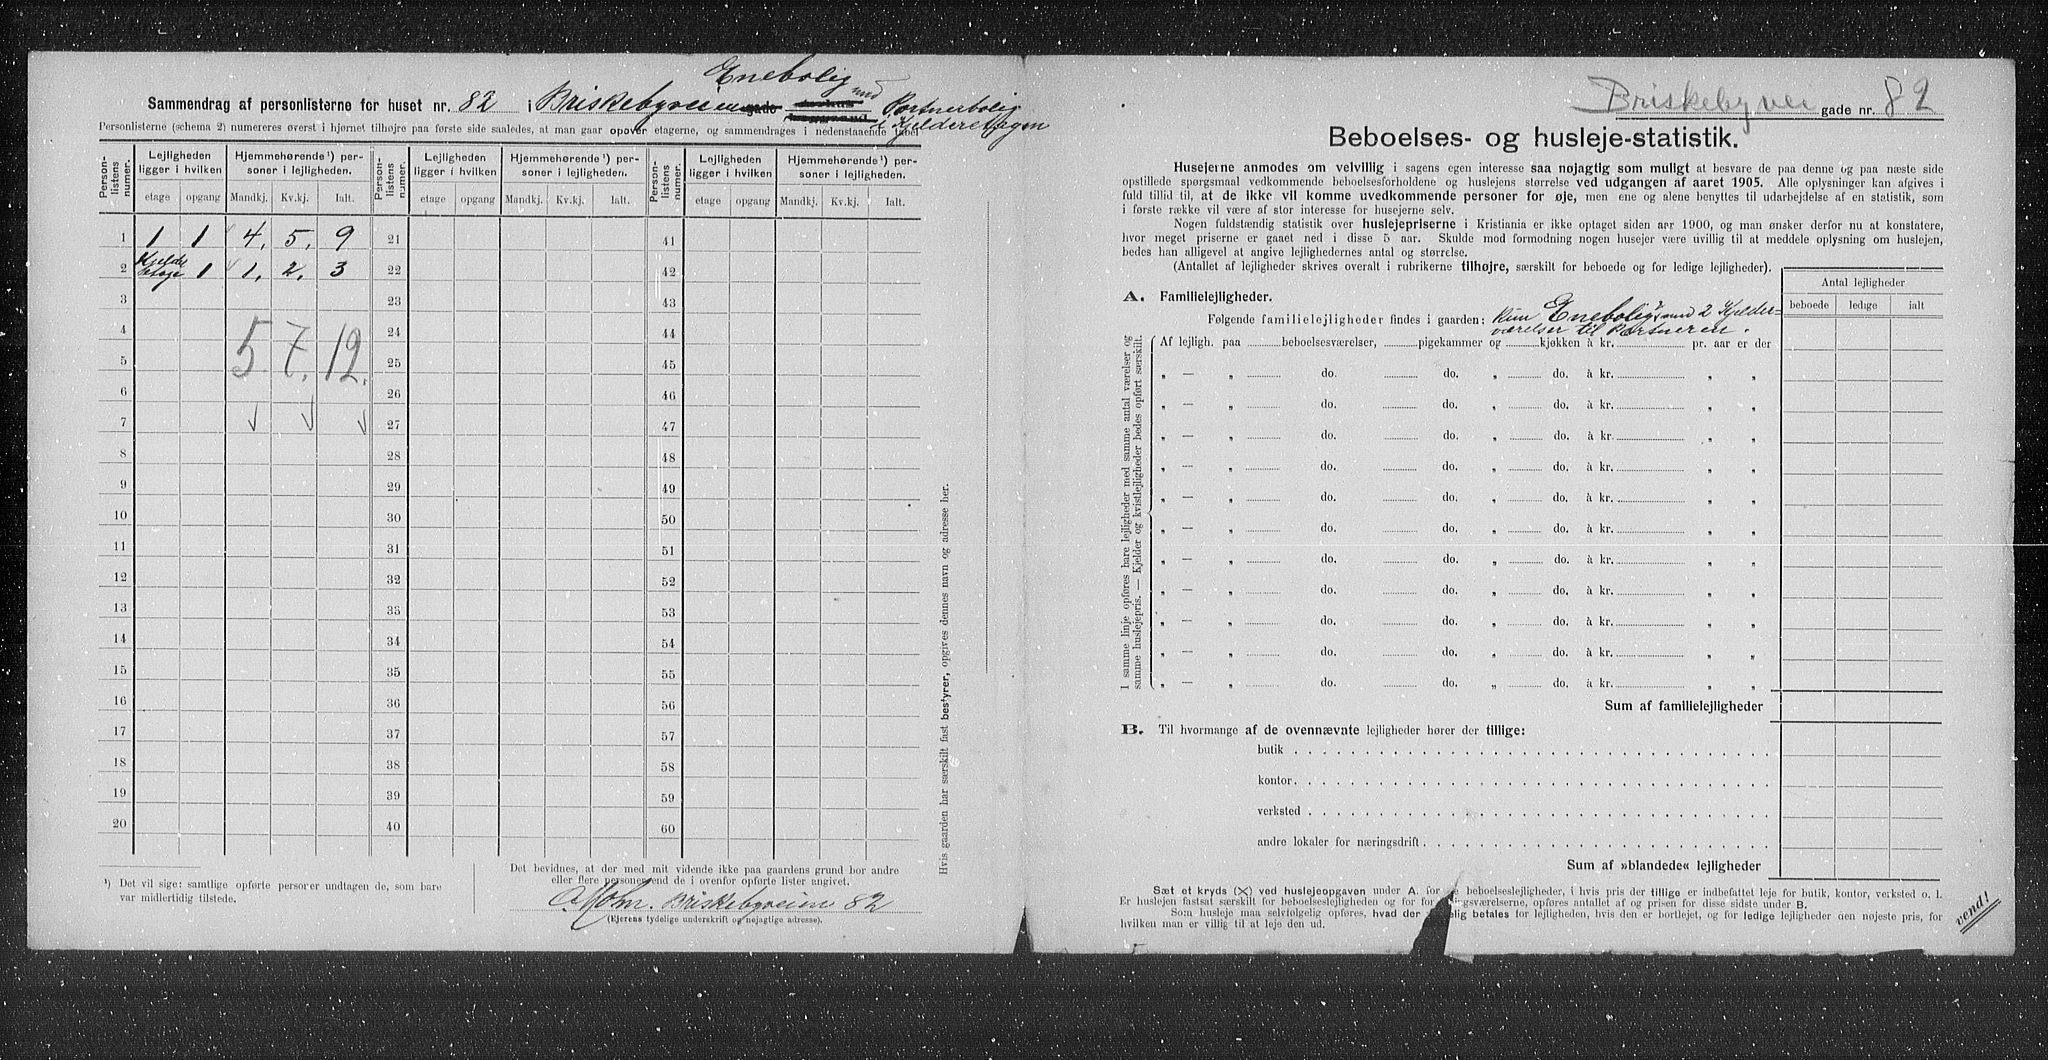 Enebolig
Sammendrag af personlisterne for huset nr. 82 i Briskebyveien gade med Portnerbolig
i Kjelderetagen
Personlisterne (schema 2) numereres øverst i hjørnet tilhøjre paa første side saaledes, at man gaar opover etagerne, og sammendrages i nedenstaaende tabel
Person-listens numer. Lejligheden ligger i hvilken Hjemmehørende¹) per-soner i lejligheden. Person-listens numer. Lejligheden ligger i hvilken Hjemmehørende¹) per-soner i lejligheden. Person-listens numer. Lejligheden ligger i hvilken Hjemmehørende¹) per-soner i lejligheden.
etage opgang Mandkj. Kv.kj. Ialt. etage opgang Mandkj. Kv.kj. Ialt. etage opgang Mandkj. Kv.kj. Ialt.
1 1 1 4. 5. 9 21 41
2 Kjelder etage 1 1. 2. 3 22 42
3 23 43
4 24 44
5. 7. 12.
5 25 45
6 26 46
7 27 47
8 28 48
9 29 49
10 30 50
11 31 51
12 32 52
13 33 53
14 34 54
15 35 55
16 36 56
17 37 57
18 38 58
19 39 59
20 40 60
¹) Det vil sige: samtlige opførte personer undtagen de, som bare
var midlertidig tilstede.
Det bevidnes, at der med mit vidende ikke paa gaardens grund bor andre
eller flere personer end de i ovenfor opførte lister angivet.
Holm. Briskebyveien 82
(Ejerens tydelige underskrift og nøjagtige adresse).
Hvis gaarden har særskilt fast bestyrer, opgives dennes navn og adresse her.
Briskebyvei gade nr. 82
Beboelses- og husleje-statistik.
Husejerne anmodes om velvillig i sagens egen interesse saa nøjagtig som muligt at besvare de paa denne og paa næste side
opstillede spørgsmaal vedkommende beboelsesforholdene og huslejens størrelse ved udgangen af aaret 1905. Alle oplysninger kan afgives i
fuld tillid til, at de ikke vil komme uvedkommende personer for øje, men ene og alene benyttes til udarbejdelse af en statistik, som
i første række vil være af stor interesse for husejerne selv.
Nogen fuldstændig statistik over huslejepriserne i Kristiania er ikke optaget siden aar 1900, og man ønsker derfor nu at konstatere,
hvor meget priserne er gaaet ned i disse 5 aar. Skulde mod formodning nogen husejer være uvillig til at meddele oplysning om huslejen,
bedes han alligevel at angive lejlighedernes antal og størrelse.
(Antallet af lejligheder skrives overalt i rubrikerne tilhøjre, særskilt for beboede og for ledige lejligheder).
Antal lejligheder
beboede ledige ialt
A. Familielejligheder.
Følgende familielejligheder findes i gaarden: Kun Enebolig, med 2 Kjelder-
værelser til Portneren.
I samme linje opføres bare lejligheder med samme antal værelser og
samme huslejepris. — Kjelder og kvistlejligheder bedes opført særskilt.
Af lejligh. paa beboelsesværelser, pigekammer og kjøkken à kr. pr. aar er der
„ — „ do. do. „ do. à kr. „ „
„ — „ do. do. „ do. à kr. „ „
„ — „ do. do. „ do. à kr. „ „
„ — „ do. do. „ do. à kr. „ „
„ — „ do. do. „ do. à kr. „ „
„ — „ do. do. „ do. à kr. „ „
„ — „ do. do. „ do. à kr. „ „
„ — „ do. do. „ do. à kr. „ „
„ — „ do. do. „ do. à kr. „ „
„ — „ do. do. „ do. à kr. „ „
„ — „ do. do. „ do. à kr. „ „
Sum af familielejligheder
B. Til hvormange af de ovennævnte lejligheder hører der tillige:
butik
kontor
verksted
andre lokaler for næringsdrift
Sum af »blandede« lejligheder
Sæt et kryds (X) ved huslejeopgaven under A. for beboelseslejligheder, i hvis pris der tillige er indbefattet leje for butik, kontor, verksted o. l.
Er huslejen fastsat særskilt for beboelseslejligheden og for gsværelserne, opføres antallet af og prisen for disse sidste under B.
Som husleje maa selvfølgelig opføres, hvad der lig betales for lejligheden, hvis den er bortlejet, og for ledige lejligheder den nøjeste pris, for
hvilken man er villig til at leje den ud.
vend!